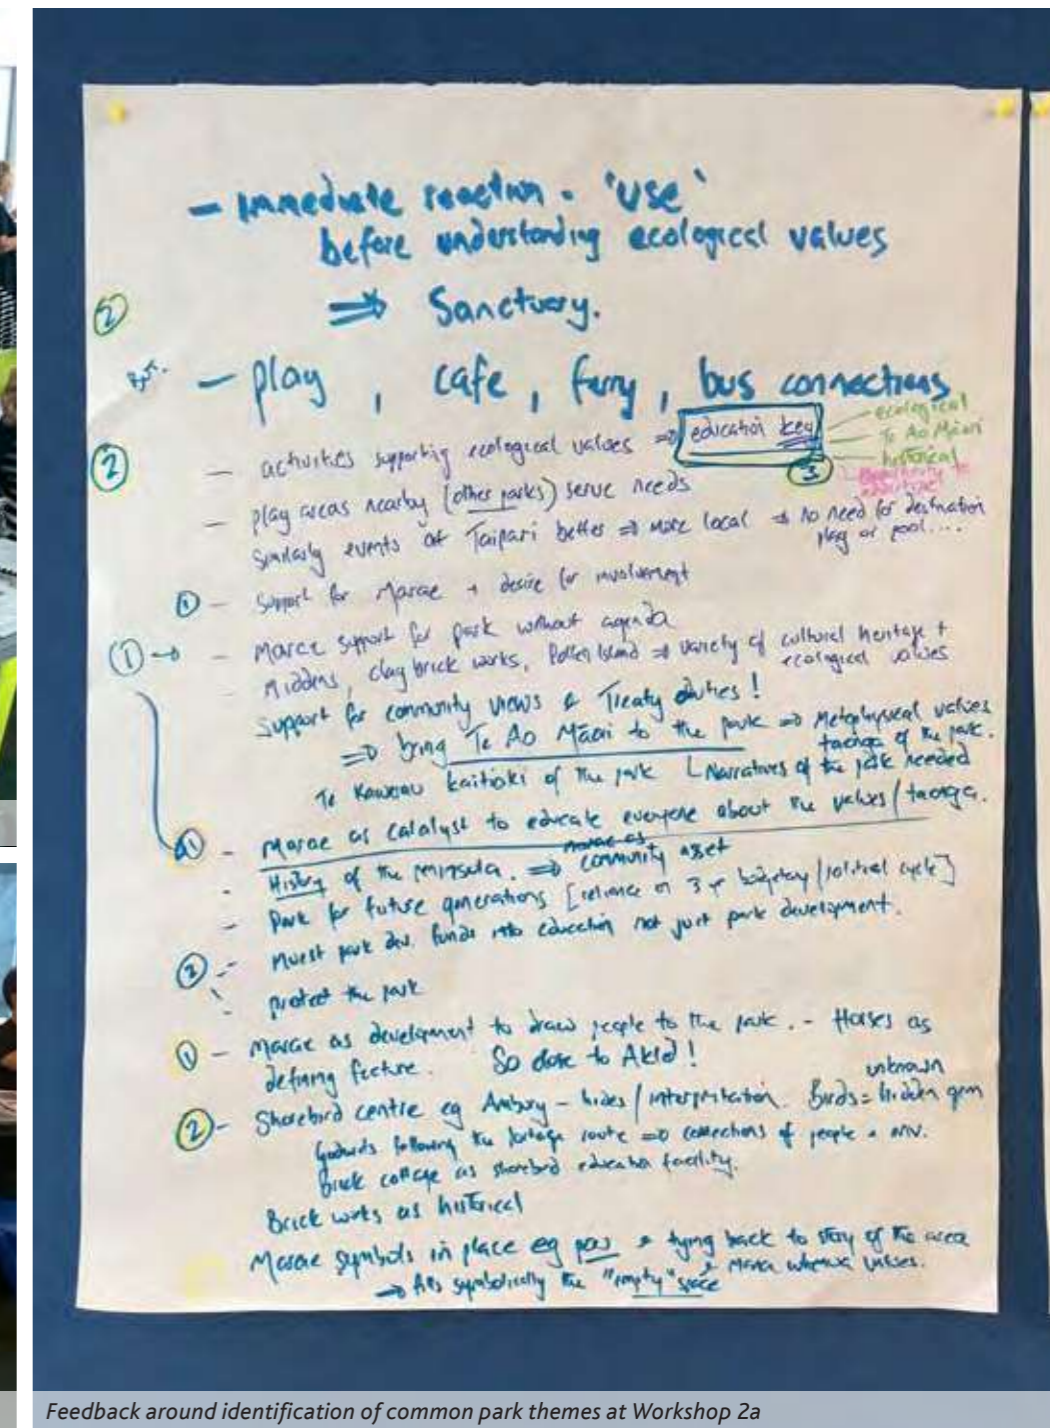 - Immediate reaction - 'use'
before understanding ecological values
⇒ Sanctuary.
②
- play, cafe, ferry, bus connections
② - activities supporting ecological values ⇒ education key
③
ecological
Te Ao Māori
historical
Opportunity to
- play areas nearby (other parks) serve needs
Similarly events at Taipari better ⇒ more local ⇒ no need for destination
play or pool....
① - Support for Marae + desire for involvement
① → - Marae support for park without agenda
- Middens, clay brick works, Pollen Island ⇒ variety of cultural heritage +
ecological values
Support for community views & Treaty duties!
⇒ bring Te Ao Māori to the park ⇒ Metaphysical values
taonga of the park.
Te Kawerau kaitiaki of the park Narratives of the park needed
① - Marae as catalyst to educate everyone about the values/taonga.
- History of the peninsula. ⇒ marae as
community asset
- Park for future generations [reliance on 3 yr budgetary/political cycle]
③ - Invest park dev. funds into education not just park development.
- protect the park
① - Marae as development to draw people to the park. - Horses as
defining feature. So close to Akld!
② - Shorebird centre eg Ambury - hides/interpretation. Birds = unknown
hidden gem
Godwits following the portage route ⇒ connections of people + env.
Brick cottage as shorebird education facility.
Brick works as historical
Marae symbols in place eg pou & tying back to story of the area
→ symbolically the "empty" space & mana whenua values.
Feedback around identification of common park themes at Workshop 2a